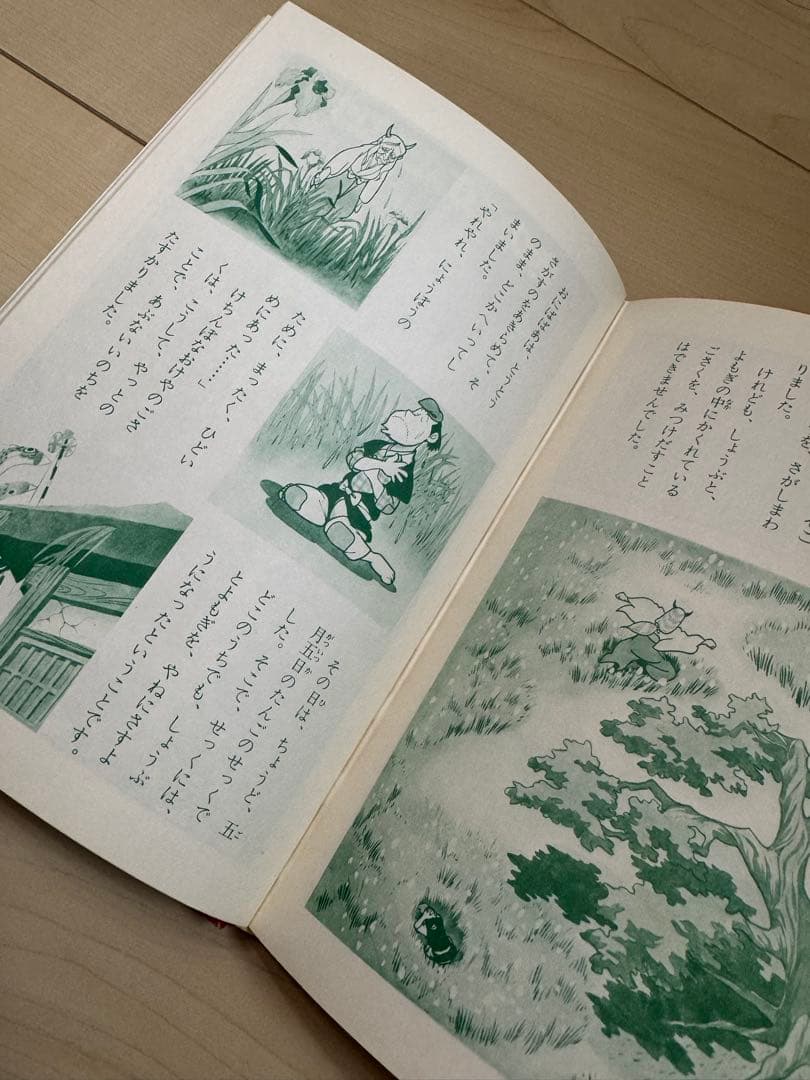 を、さがしまわ
りました。
けれども、しょうぶと、
よもぎの中にかくれている
ごさくを、みつけだすこと
はできませんでした。
おにばばあは、とうとう
さがすのをあきらめて、そ
のまま、どこかへいってし
まいました。
「やれやれ、にょうぼうの
ために、まったく、ひどい
めにあった……」
けちんぼなおけやのごさ
くは、こうして、やっとの
ことで、あぶないいのちを
たすかりました。
その日は、ちょうど、五
月五日のたんごのせっくで
した。そこで、せっくには、
どこのうちでも、しょうぶ
とよもぎを、やねにさすよ
うになったということです。